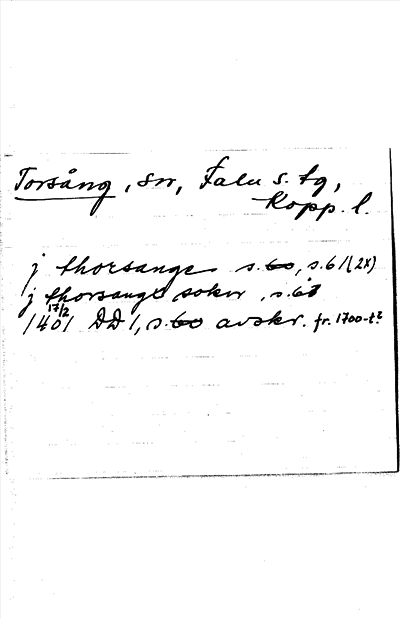 Torsång, sn, Falu s. tg,
Kopp. l.
j thorsange s. 60, s. 61 (2x)
j thorsange sokn, s. 60
17/2
1401 DD 1, s. 60 avskr. fr. 1700-t.